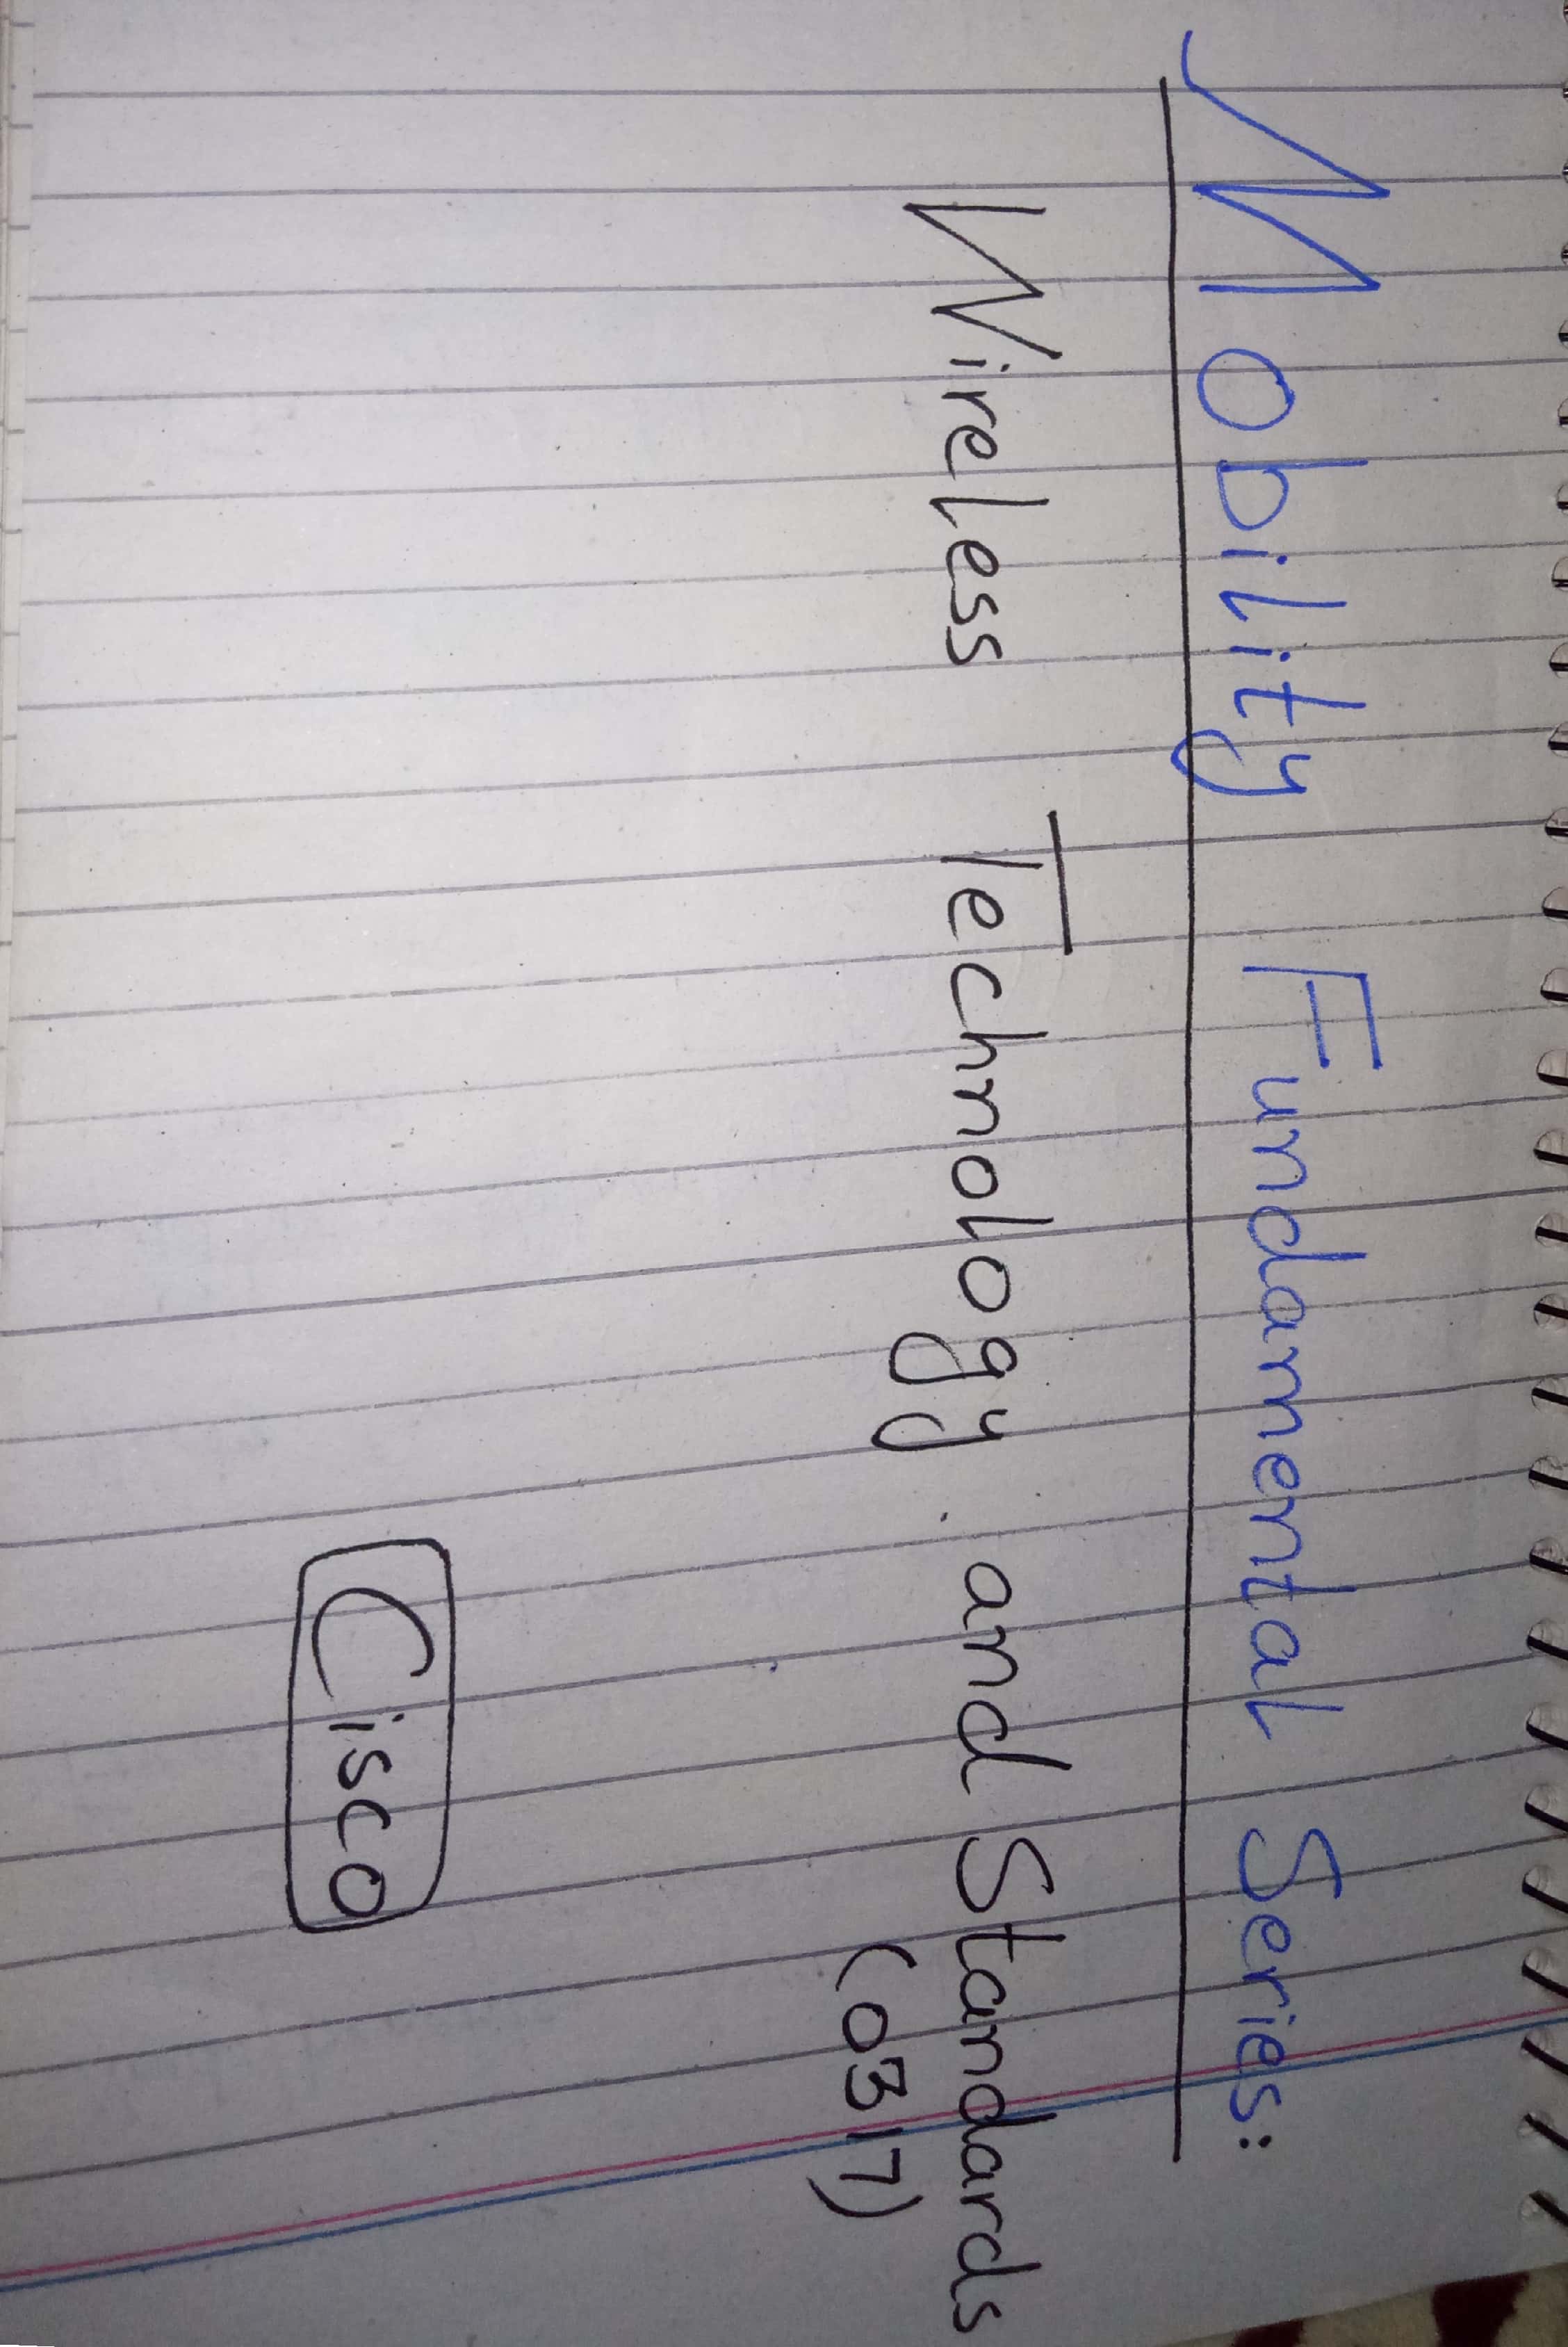 Mobility Fundamental Series:
Wireless Technology and Standards
(0317)
Cisco